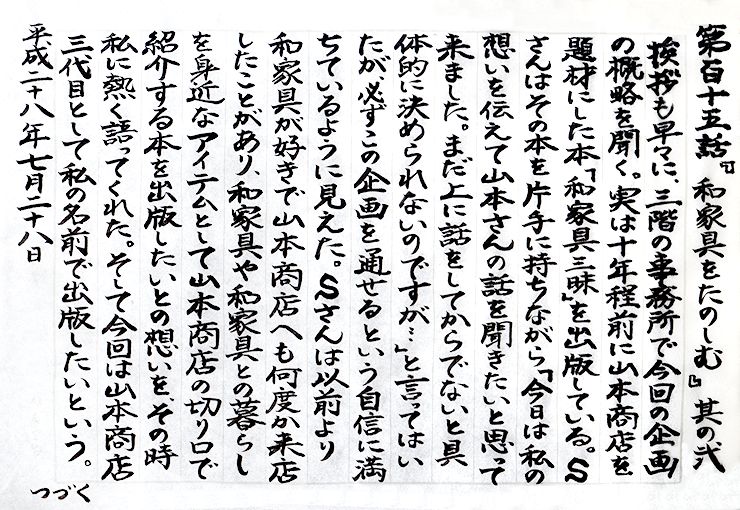 第百十五話『和家具をたのしむ』其の弐
挨拶も早々に、三階の事務所で今回の企画
の概略を聞く。実は十年程前に山本商店を
題材にした本「和家具三昧」を出版している。S
さんはその本を片手に持ちながら「今日は私の
想いを伝えて山本さんの話を聞きたいと思って
来ました。まだ上に話をしてからでないと具
体的に決められないのですが…」と言ってはい
たが、必ずこの企画を通せるという自信に満
ちているように見えた。Sさんは以前より
和家具が好きで山本商店へも何度か来店
したことがあり、和家具や和家具との暮らし
を身近なアイテムとして山本商店の切り口で
紹介する本を出版したいとの想いを、その時
私に熱く語ってくれた。そして今回は山本商店
三代目として私の名前で出版したいという。
平成二十八年七月二十八日
つづく